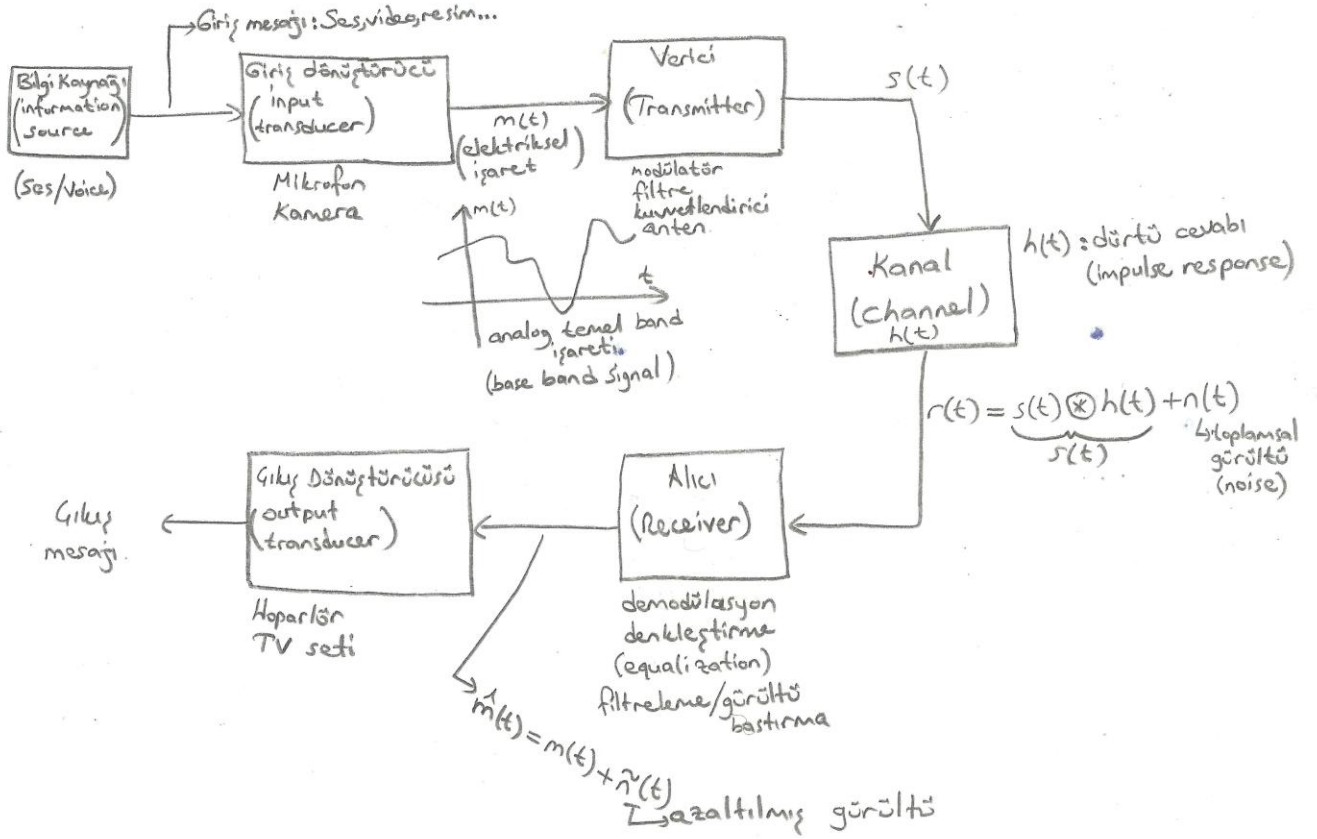 Giriş mesajı: Ses, video, resim...
Bilgi Kaynağı
(information
source)
(Ses/Voice)
Giriş dönüştürücü
(input
transducer)
Mikrofon
Kamera
m(t)
(elektriksel
işaret)
Verici
(Transmitter)
modülatör
filtre
kuvvetlendirici
anten
s(t)
m(t)
t
analog temel band
işareti
(base band signal)
Kanal
(Channel)
h(t)
h(t) : dürtü cevabı
(impulse response)
r(t) = s(t) ⊛ h(t) + n(t)
s(t)
toplamsal
gürültü
(noise)
Alıcı
(Receiver)
demodülasyon
denkleştirme
(equalization)
filtreleme/gürültü
bastırma
Çıkış Dönüştürücüsü
(output
transducer)
Hoparlör
TV seti
Çıkış
mesajı
m̂(t) = m(t) + ñ(t)
azaltılmış gürültü